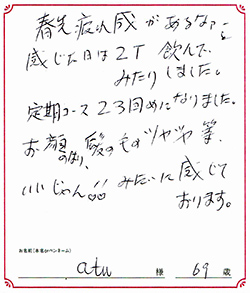 春先疲れ感があるなァーと
感じた日は2T 飲んで、
みたりしました。
定期コース23回めになりました。
お顔のはり、髪のもツヤツヤ 等、
いいじゃん!! みたいに感じて
おります。
お名前(本名orペンネーム)
atu 様 69 歳